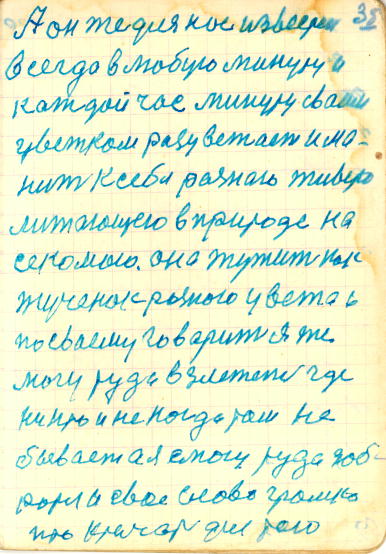 А он же для нас известен
всегда в любую минуту и
каждой час минуту своим
цветком разцветает и ма-
нит к себя разнаго живаго
литающего в природе на
секомаго. она жужжит как
жученок разного цвета а
по своему говарит я же
могу туда взлететь где
никто и некогда там не
бывает а я смогу туда доб-
ратся и свое слово громко
про кричат для того